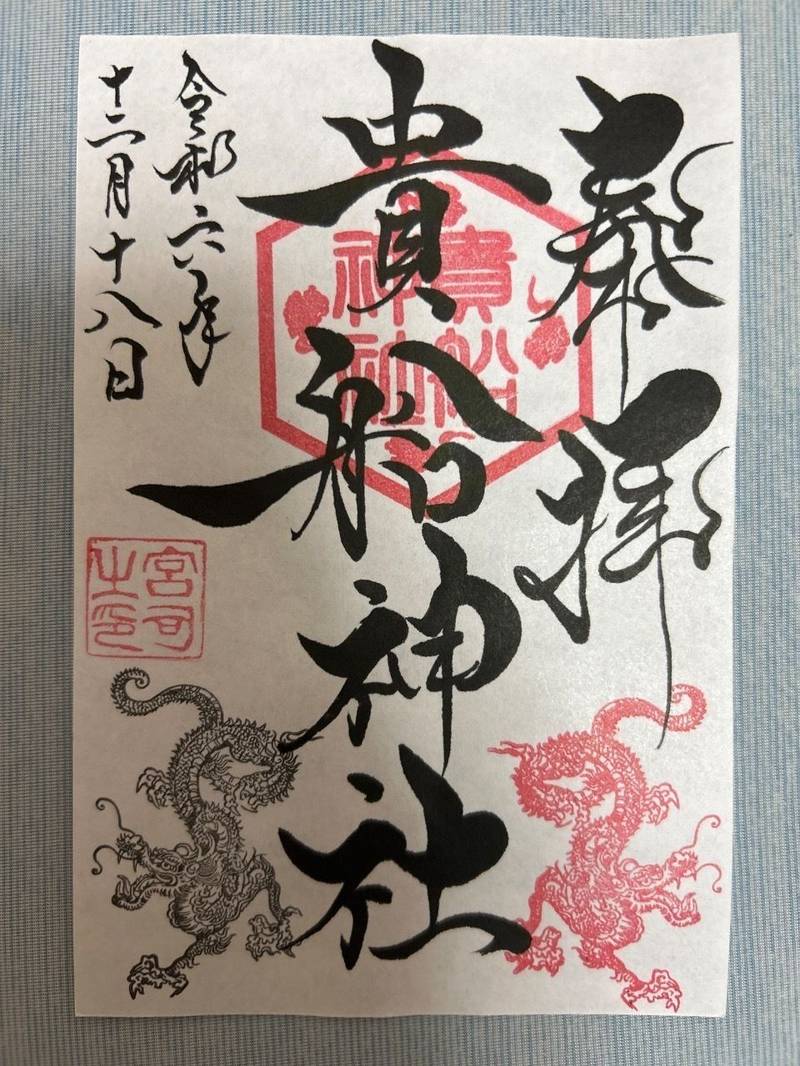 奉拝
貴船神社
貴船
神社
令和六年
十二月十八日
宮司
之印